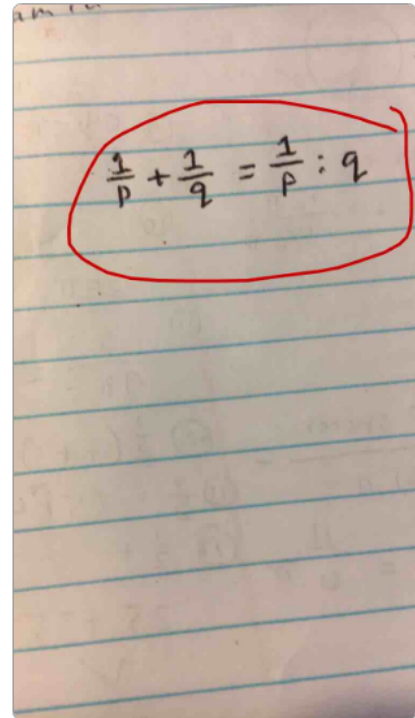 1/p + 1/q = 1/p : q